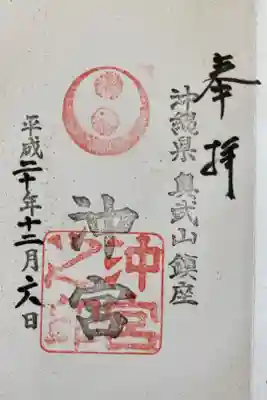 奉拝
沖縄県 奥武山鎮座
沖宮
沖宮
平成二十年十二月六日